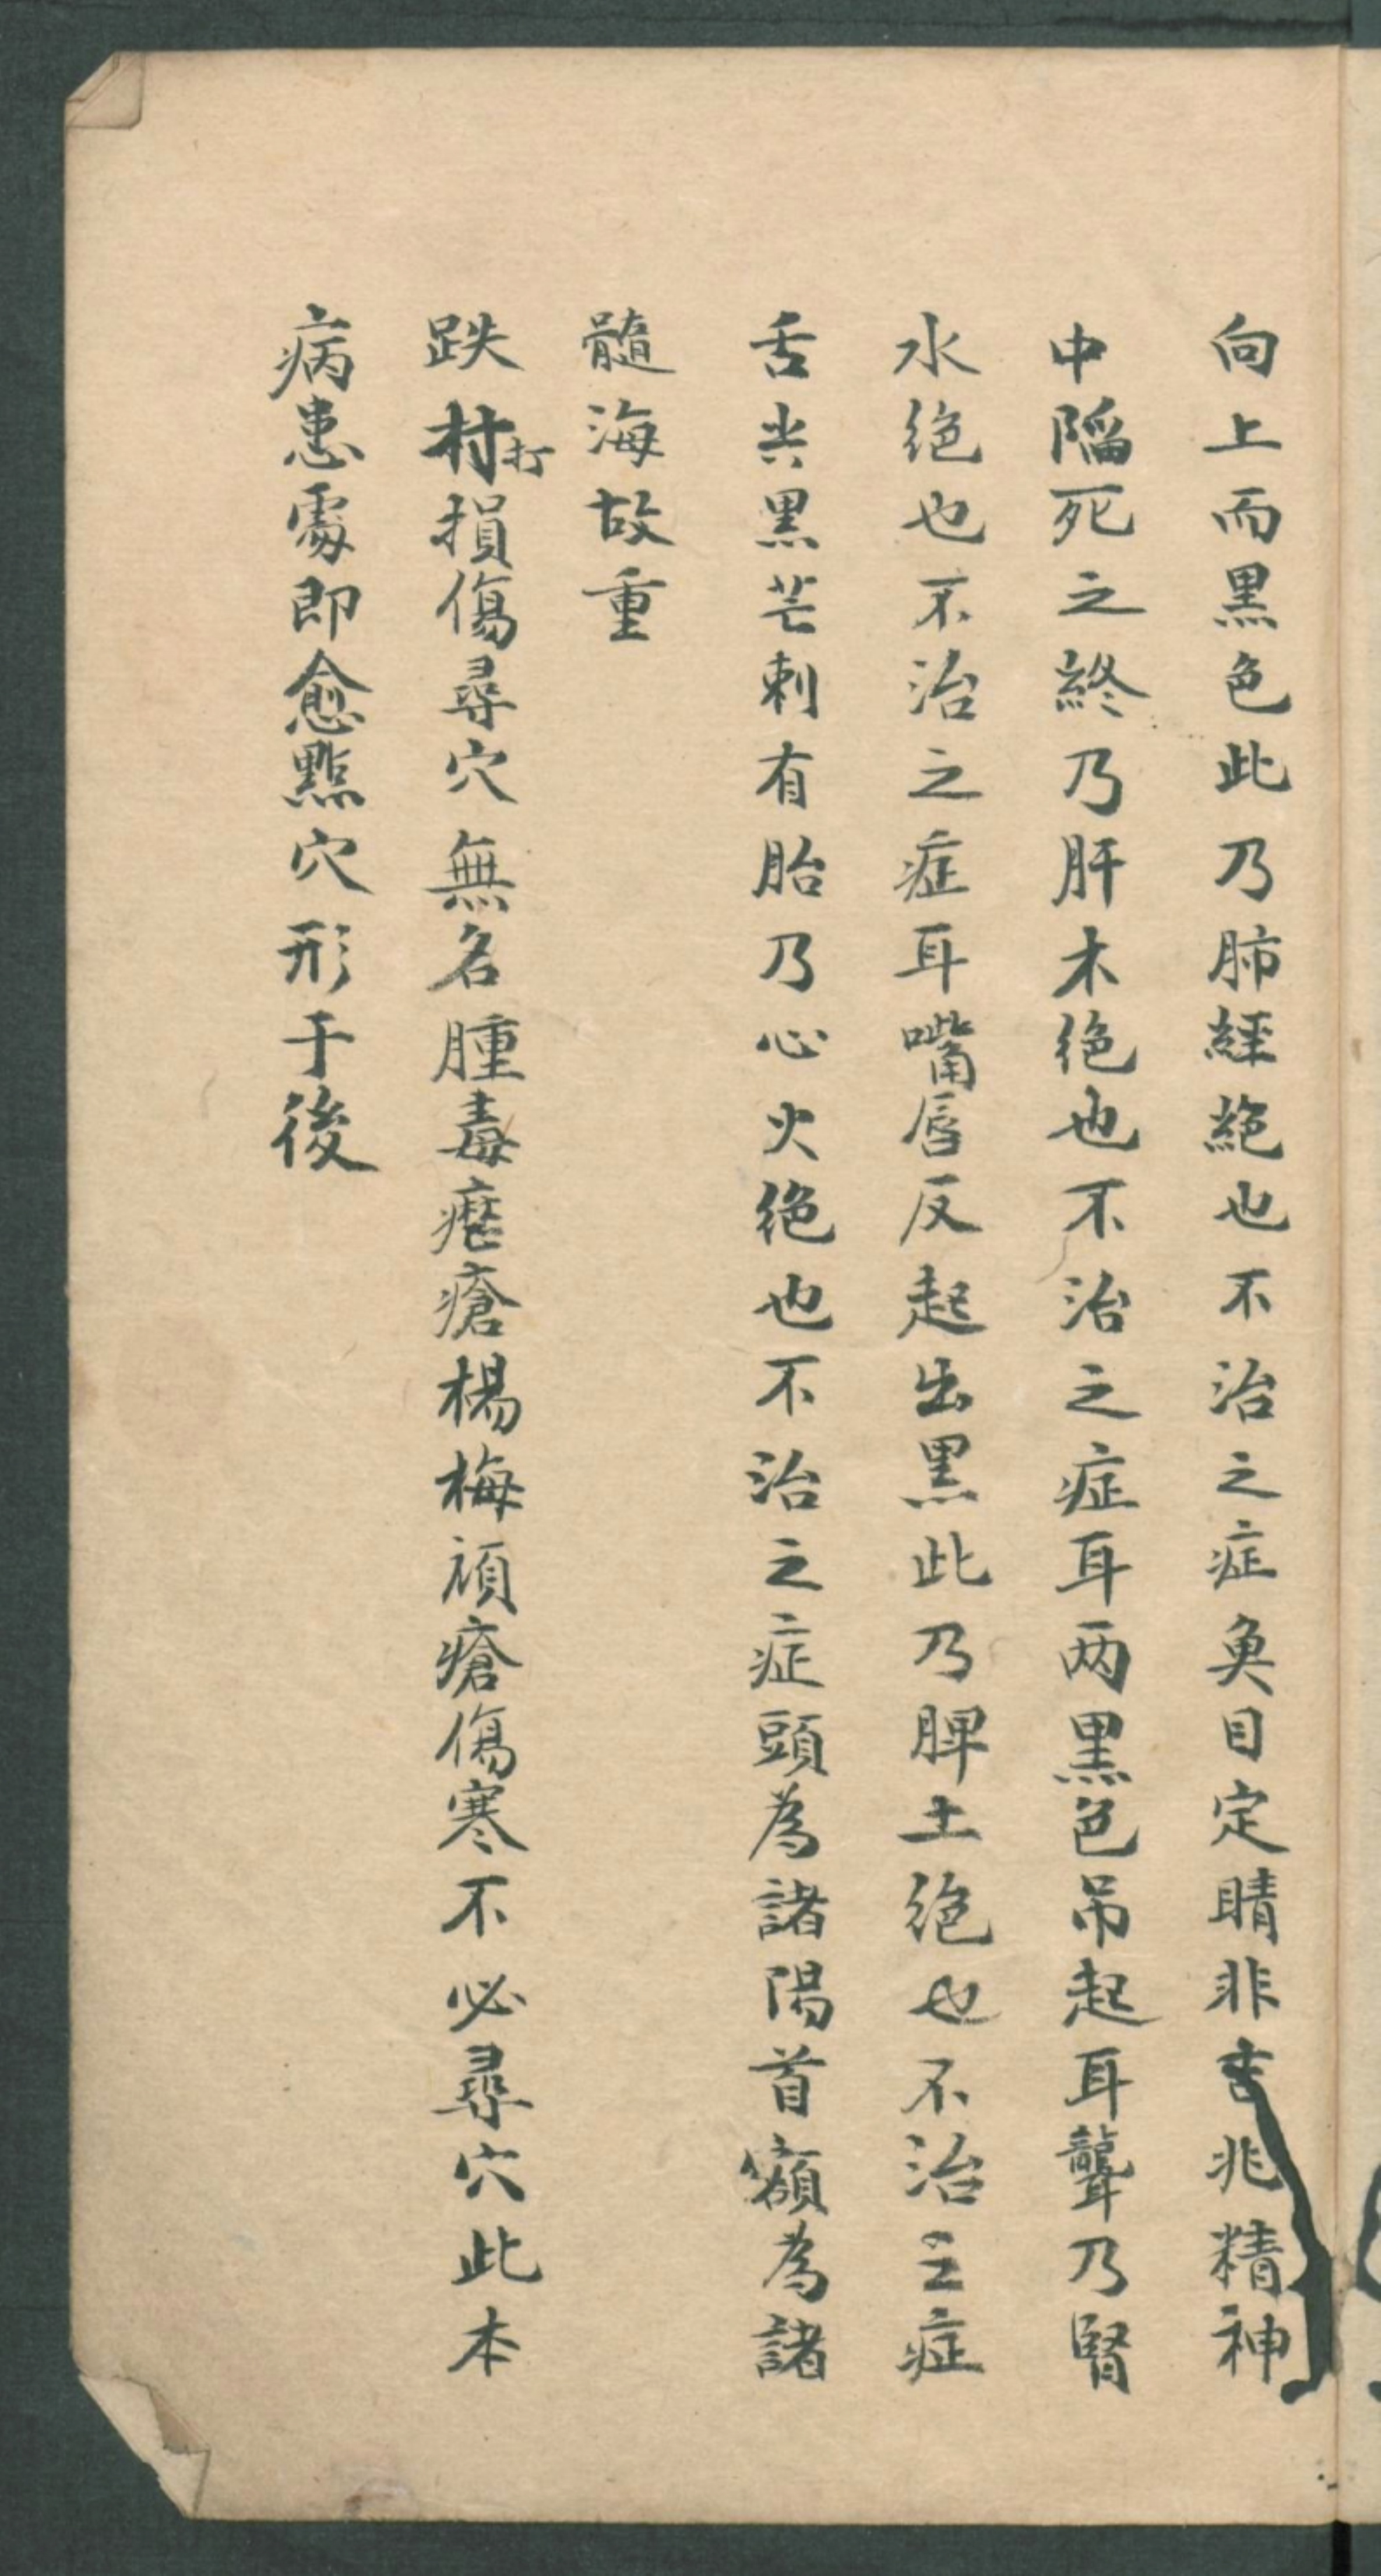 向上而黑色此乃肺經絕也不治之症魚目定睛非吉兆精神
中陷死之終乃肝木绝也不治之症耳两黑色吊起耳聾乃腎
水绝也不治之症耳嘴唇反起出黑此乃脾土绝也不治之症
舌尖黑芒刺有胎乃心火绝也不治之症頭為諸陽首額為諸
髓海故重
跌打損傷尋穴無名腫毒瘡楊梅頑瘡傷寒不必尋穴此本
病患處即愈點穴形于後